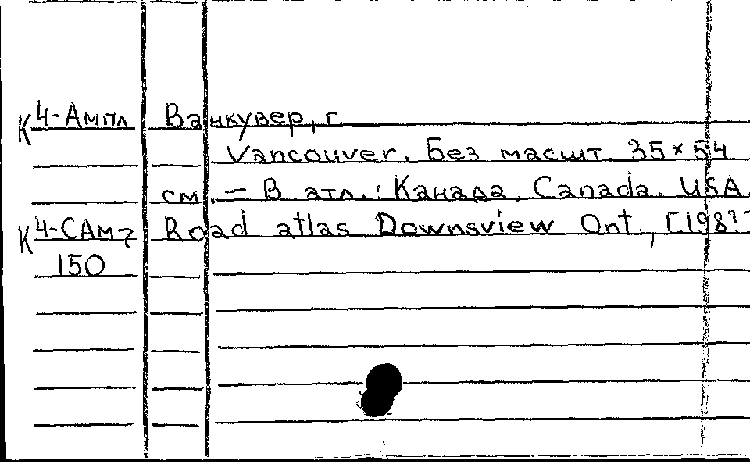 К 4-Ампл Ванкувер, г
Vancouver. Без масшт 35×54
см. — В атл.: Канада. Canada. USA
К 4-САм-7 Road atlas Downsview Ont, [198??
150